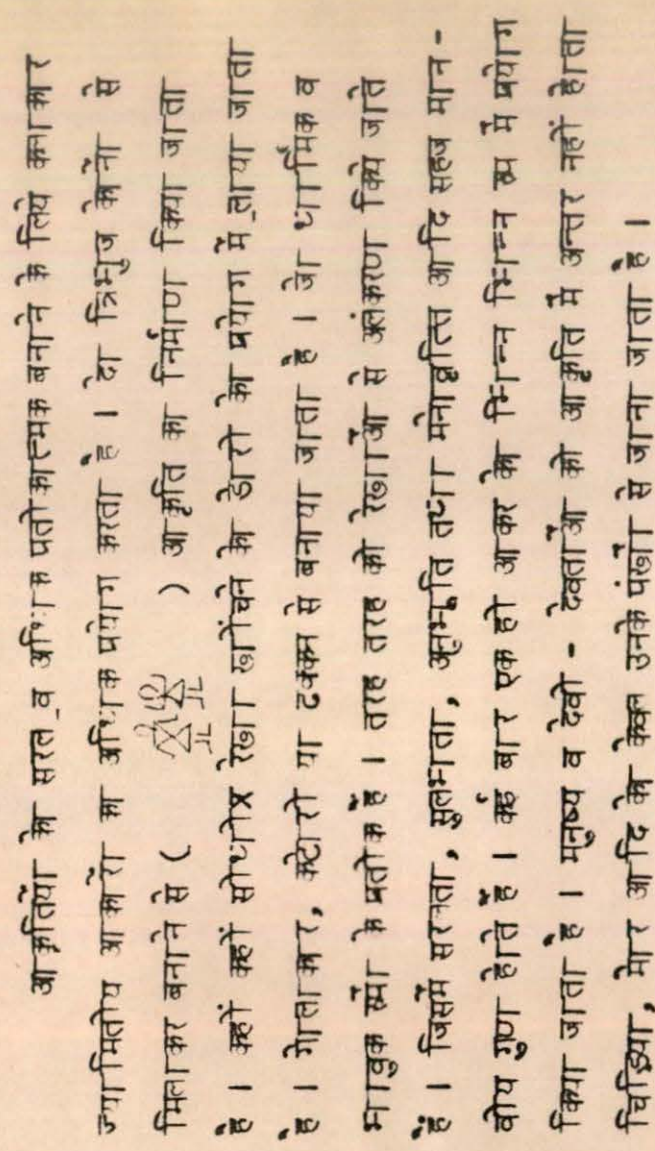 आकृतियों को सरल व अधिक प्रतीकात्मक बनाने के लिये कलाकार
ज्यामितीय आकारों का अधिक प्रयोग करता है । दो त्रिभुज कोनों से
मिलाकर बनाने से ( ) आकृति का निर्माण किया जाता
है । कहीं कहीं सीधी रेखा खींचने को डोरी को प्रयोग में लाया जाता
है । गोलाकार, कटोरी या ढक्कन से बनाया जाता है । जो धार्मिक व
भावुक रूपों के प्रतीक हैं । तरह तरह की रेखाओं से अलंकरण किये जाते
हैं । जिसमें सरलता, सुलभता, अनुभूति तथा मनोवृत्ति आदि सहज मान -
वीय गुण होते हैं । कई बार एक ही आकार को भिन्न भिन्न रूप में प्रयोग
किया जाता है । मनुष्य व देवी - देवताओं की आकृति में अन्तर नहीं होता
चिड़िया, मोर आदि को केवल उनके पंखों से जाना जाता है ।